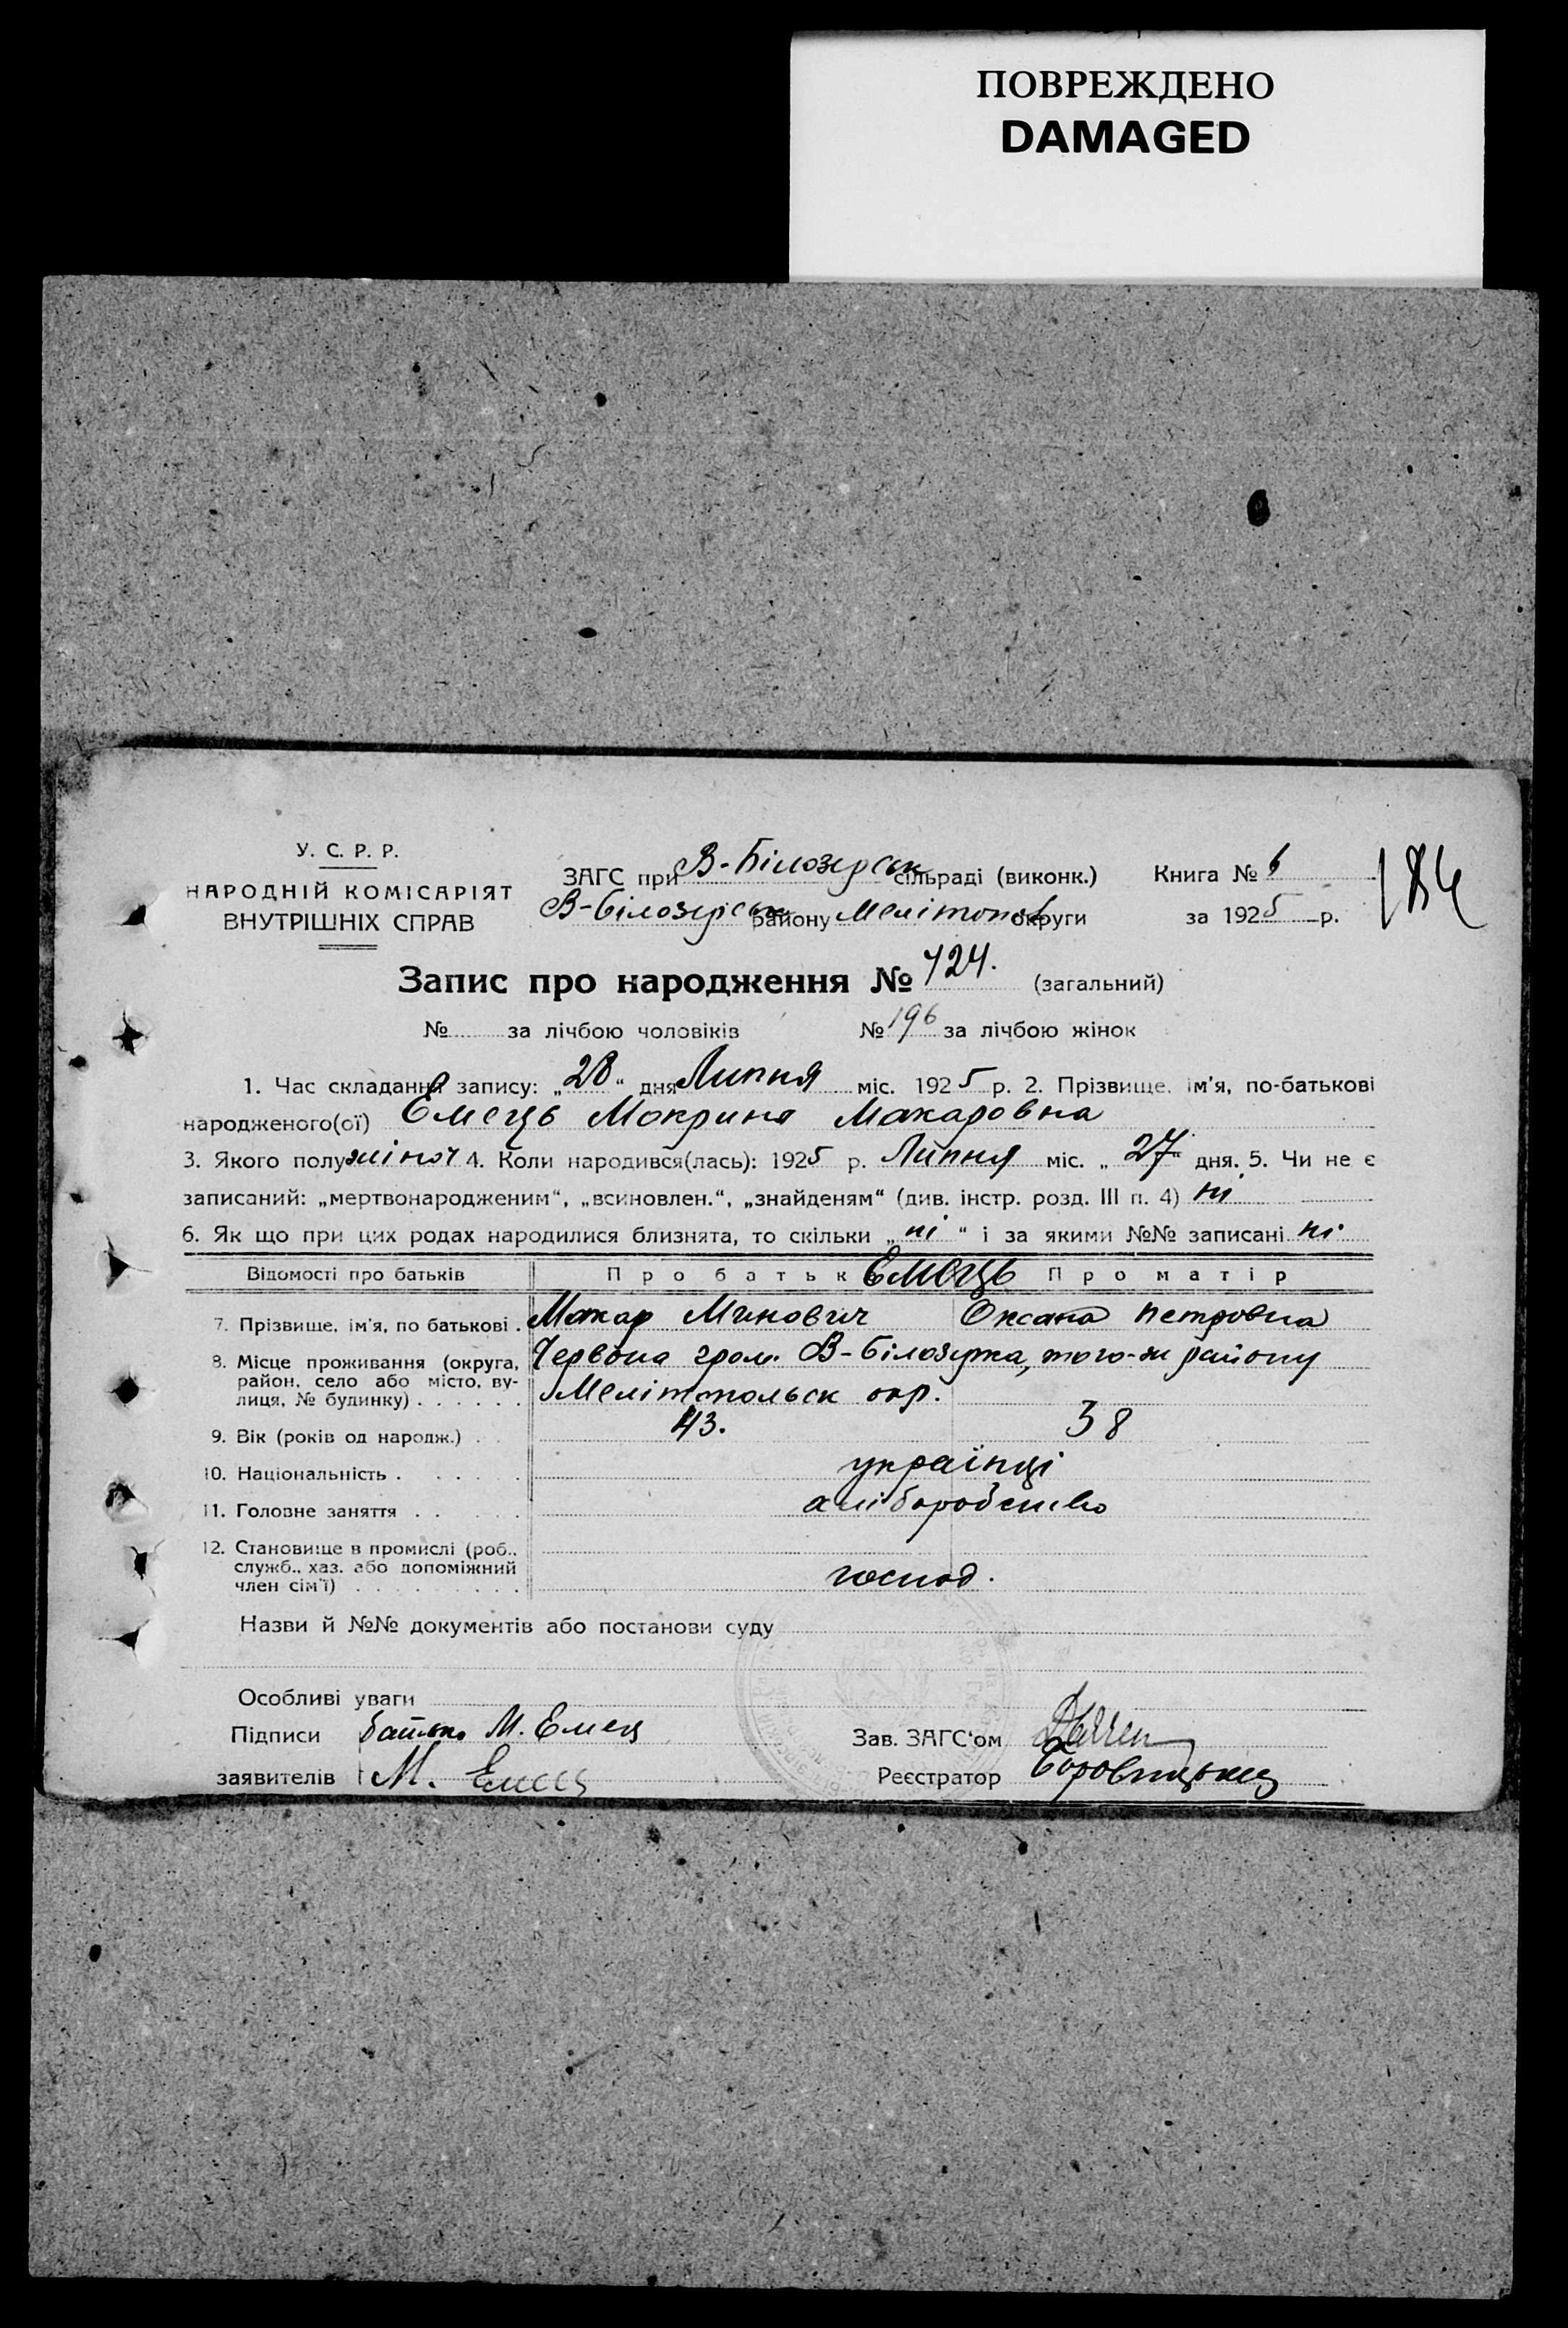 ПОВРЕЖДЕНО
DAMAGED
У. С. Р. Р.
НАРОДНІЙ КОМІСАРІЯТ
ВНУТРІШНІХ СПРАВ
ЗАГС при В-Білозерськ сільраді (виконк.)
В-Білозерськ району Мелітоп округи
Книга № 6
за 1925 р.
184
Запис про народження № 424. (загальний)
№ за лічбою чоловіків № 196 за лічбою жінок
1. Час складання запису: „28“ дня Липня міс. 1925 р. 2. Прізвище, ім'я, по-батькові
народженого(ої) Емець Мокрина Макаровна
3. Якого полу жіноч 4. Коли народився(лась): 1925 р. Липня міс. „27“ дня. 5. Чи не є
записаний: „мертвонародженим“, „всиновлен.“, „знайденям“ (див. інстр. розд. III п. 4) ні
6. Як що при цих родах народилися близнята, то скільки „ні“ і за якими №№ записані ні
Відомості про батьків Про батьк Емець Про матір
7. Прізвище, ім'я, по батькові . Макар Минович Оксана Петровна
8. Місце проживання (округа, Червона гром. В-Білозерка, того-ж району
район, село або місто, ву-
лиця, № будинку) . . . . . . Мелітопольськ окр.
9. Вік (років од народж.) . . 43. 38
10. Національність . . . . . українці
11. Головне заняття . . . . . хліборобство
12. Становище в промислі (роб.,
служб., хаз. або допоміжний
член сім'ї) . . . . . . . . . господ.
Назви й №№ документів або постанови суду
Особливі уваги
Підписи батько М. Емец Зав. ЗАГС'ом
заявителів М. Емец Реєстратор